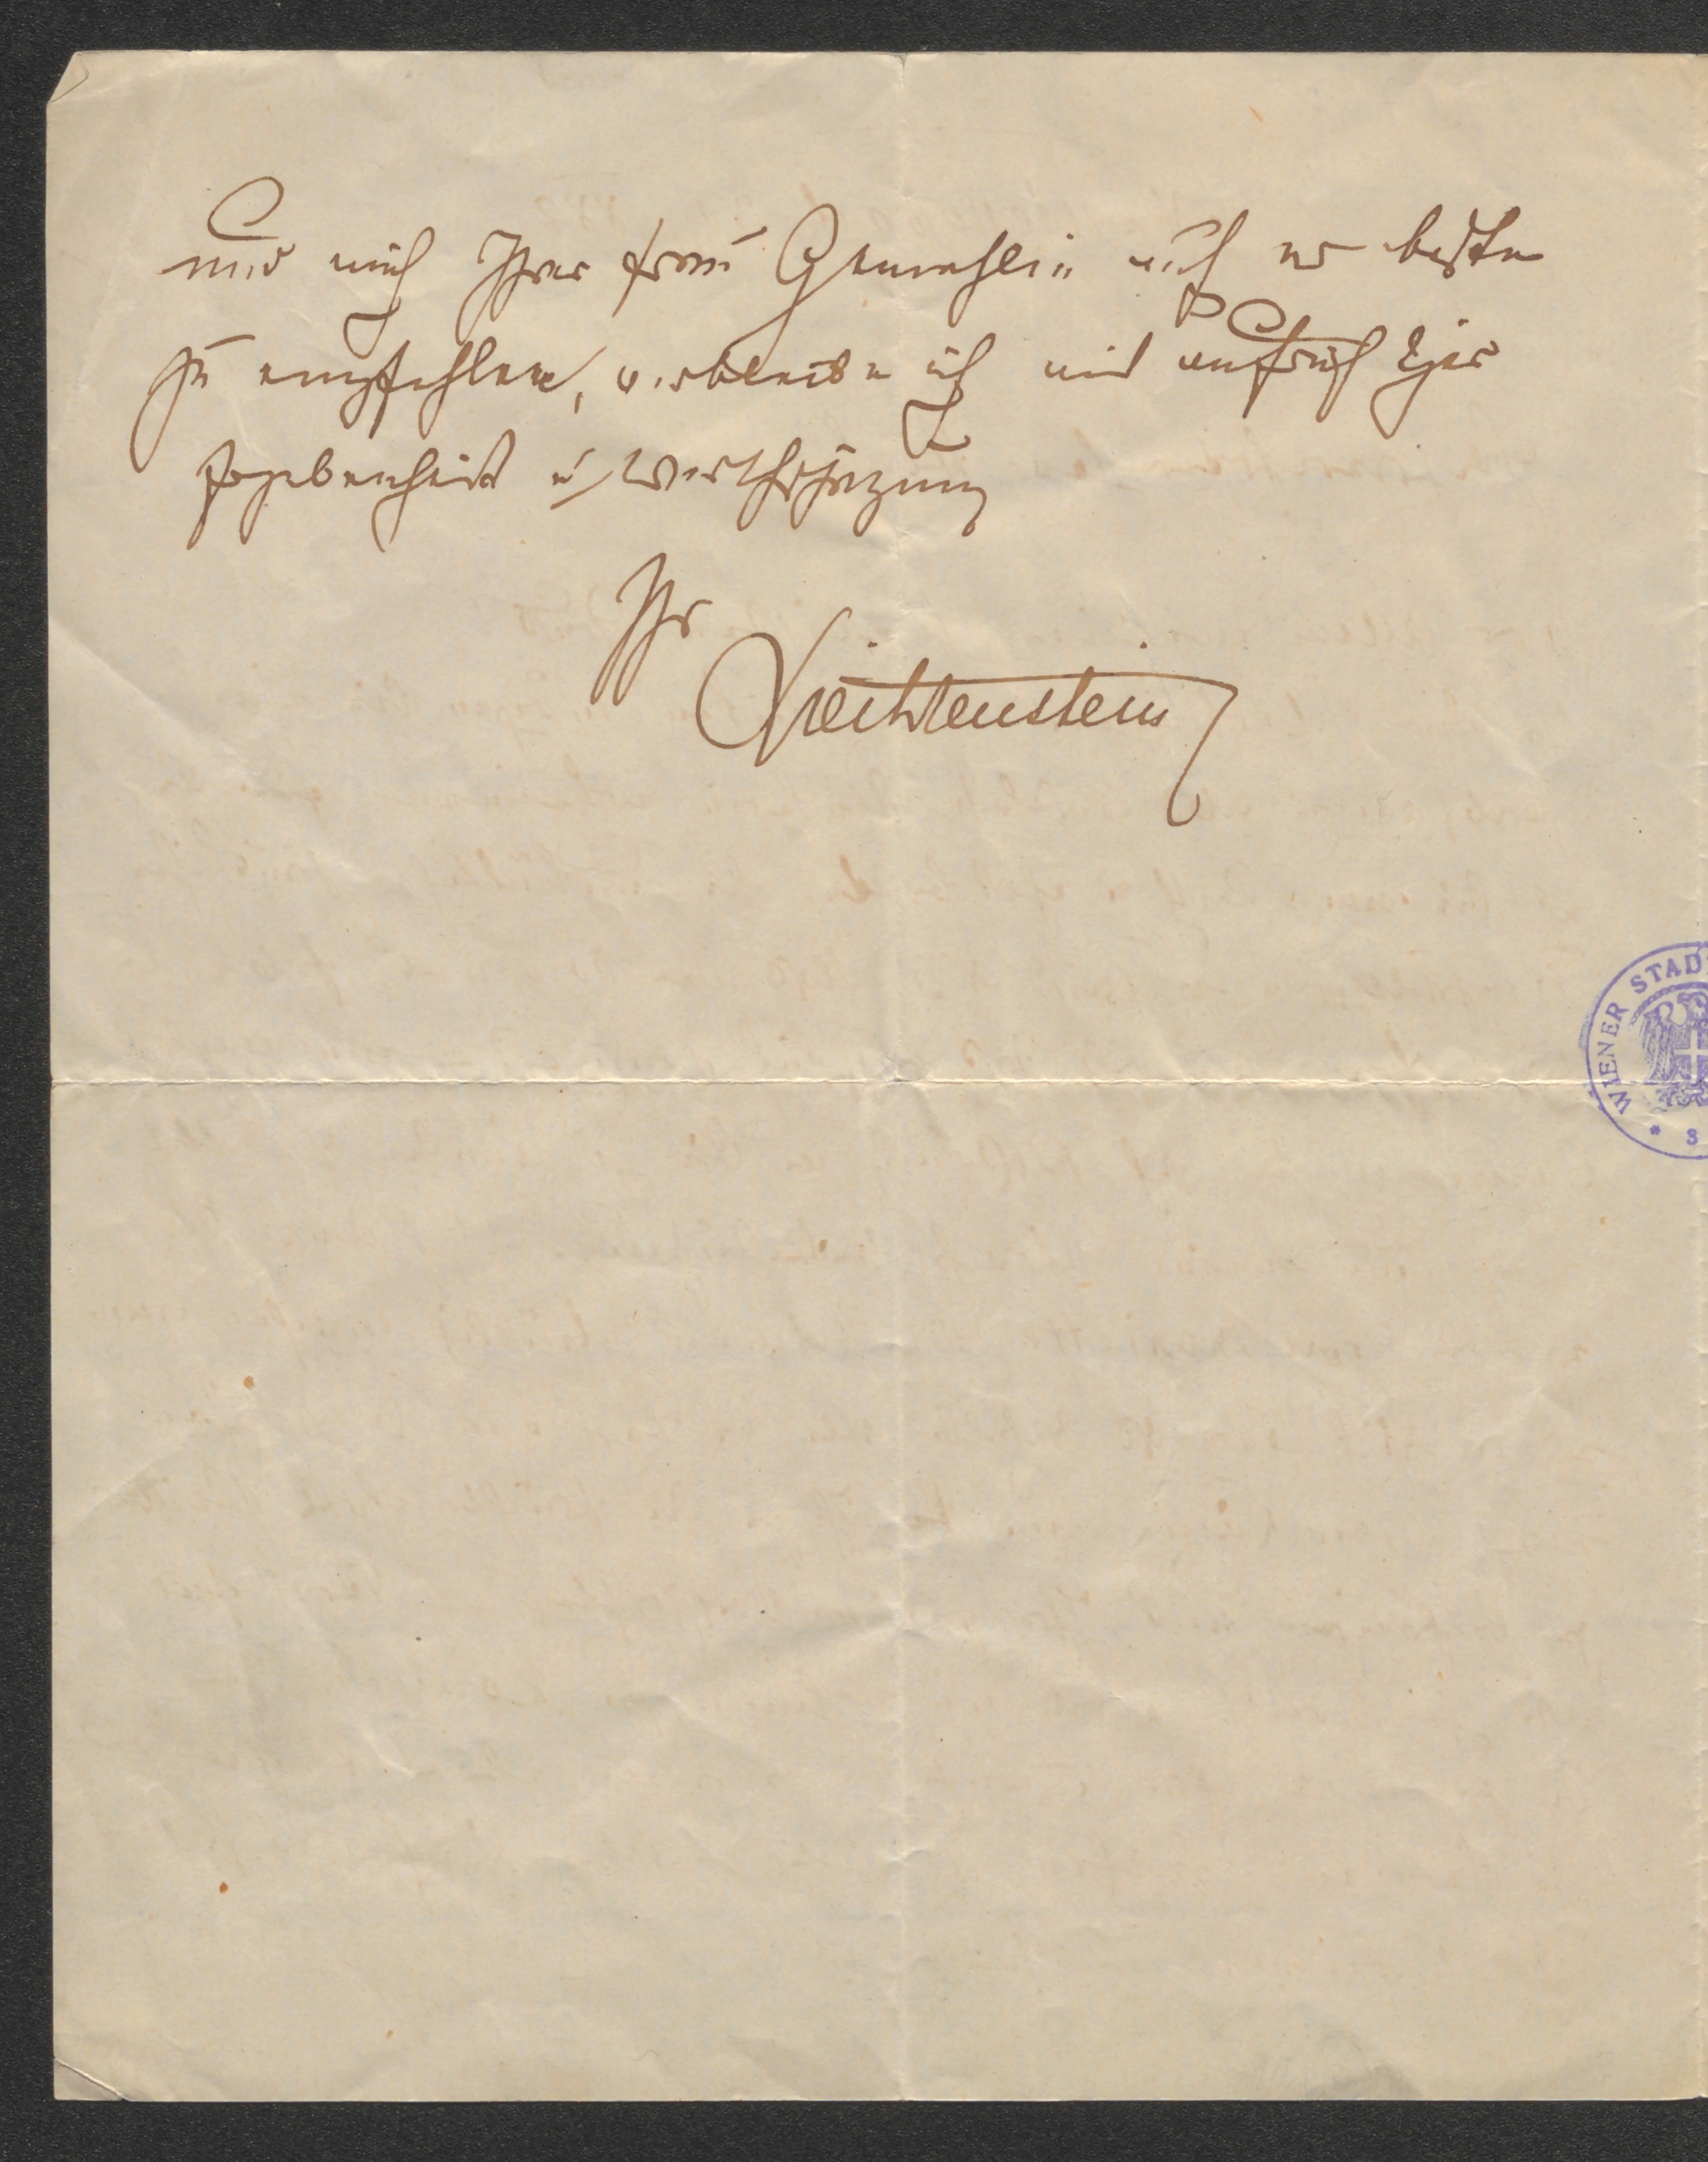 und mich Ihrer Frau Gemahlin auf's beste
zu empfehlen, verbleibe ich mit aufrichtiger
Ergebenheit u. Wertschäzung
Ihr
Liechtenstein
WIENER STAD
* S